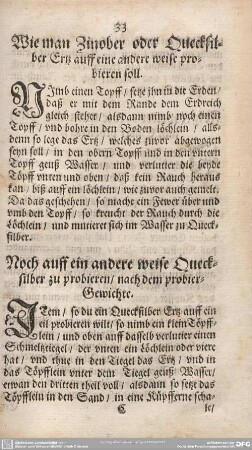 33
Wie man Zinober oder Quecksil-
ber Ertz auff eine andere weise pro-
bieren soll.
NImb einen Topff / setze ihn in die Erden /
daß er mit dem Rande dem Erdreich
gleich stehet / alsdann nimb noch einen
Topff / vnd bohre in den Boden löchlein / als-
denn so lege das Ertz / welches zuvor abgewogen
seyn soll / in den obern Topff vnd in den vntern
Topff geuß Wasser / vnd verlutier die beyde
Töpff vnten vnd oben / daß kein Rauch heraus
kan / biß auff ein löchlein / wie zuvor auch gemelt.
Da das geschehen / so mache ein Fewer über vnd
vmb den Topff / so kreucht der Rauch durch die
Löchlein / vnd mutiert sich im Wasser zu Queck-
silber.
Noch auff ein andere weise Queck-
silber zu probieren / nach dem probier-
Gewichte.
ITem / so du ein Quecksilber Ertz auff ein
eil probieren wilt / so nimb ein klein Töpff-
lein / vnd oben auff dasselb verlutier einen
Schmeltztiegel / der vnten ein Löchlein oder vier
hat / vnd thue in den Tiegel das Ertz / vnd in
das Töpfflein vnter dem Tiegel geuß Wasser /
etwan den dritten theil voll / alsdann so setze das
Töpfflein in den Sand / in eine Küpfferne scha-
C
le /